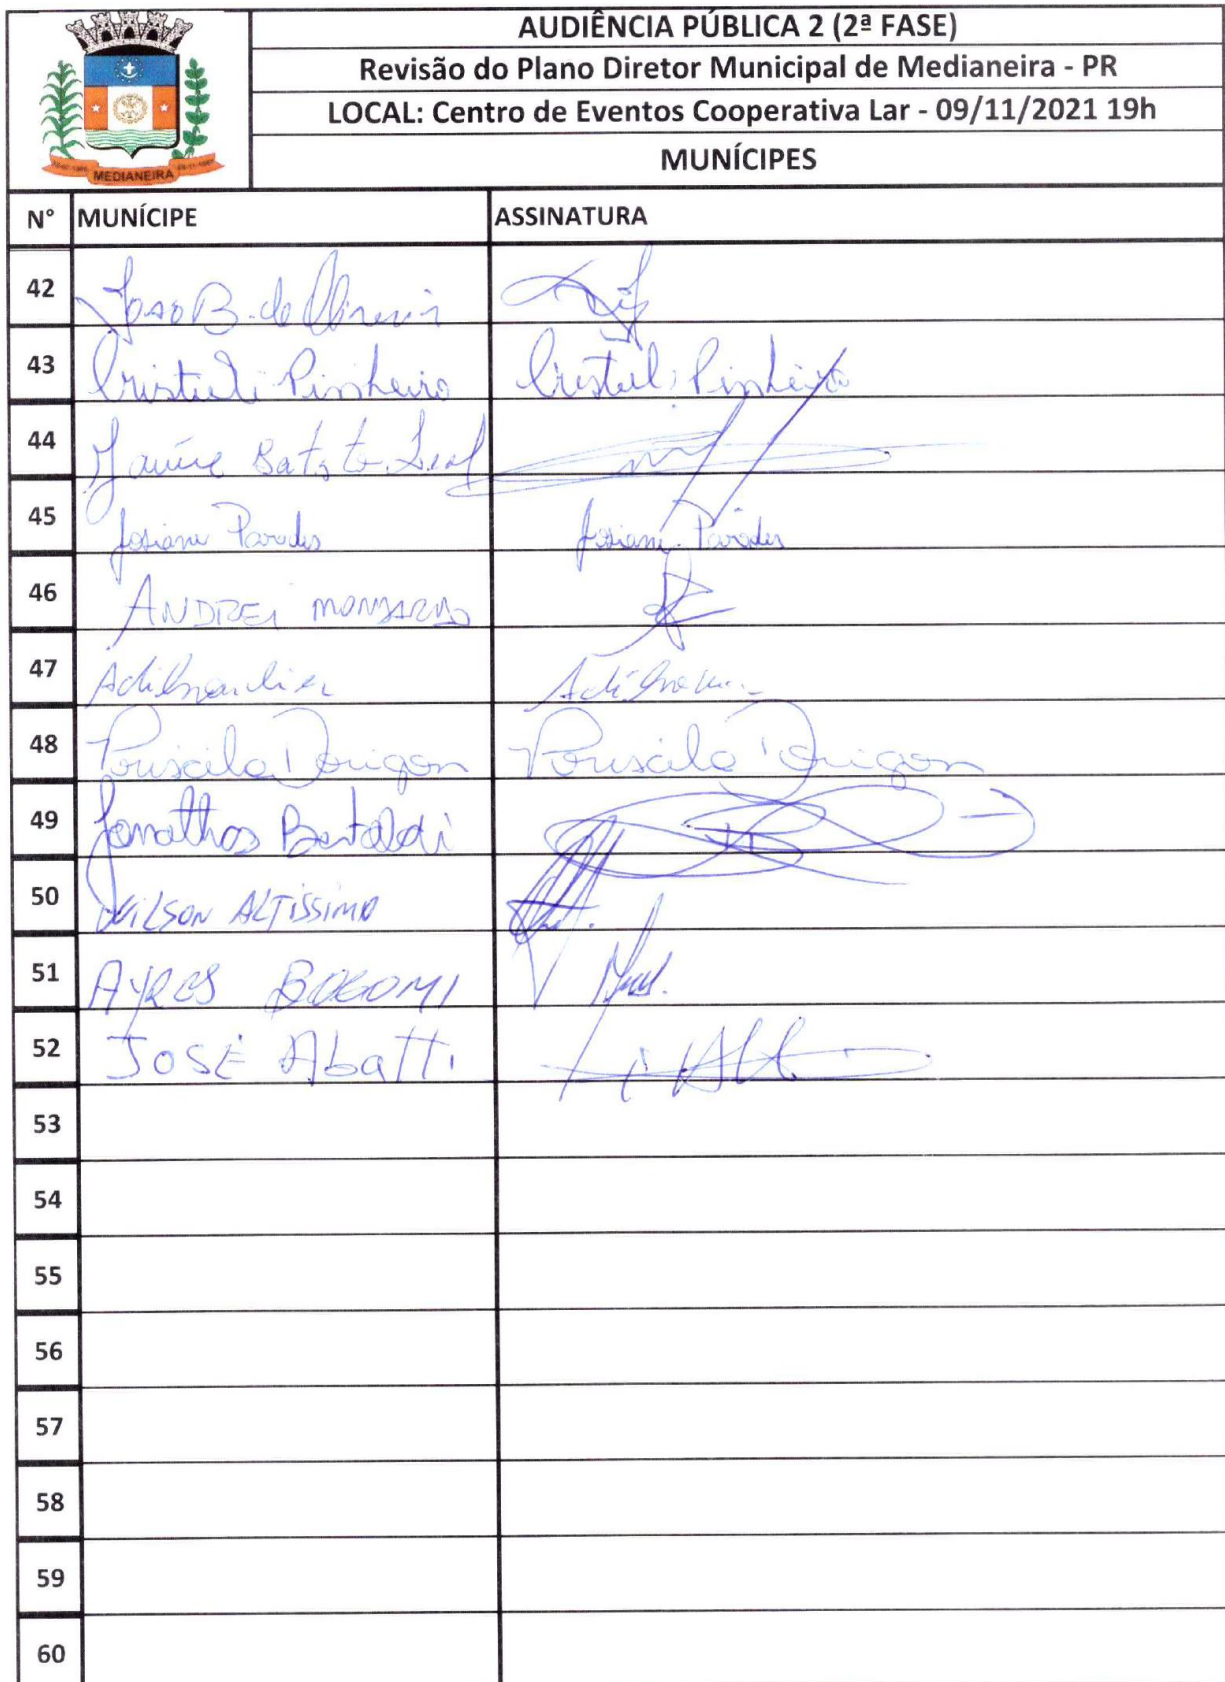 AUDIÊNCIA PÚBLICA 2 (2ª FASE)
Revisão do Plano Diretor Municipal de Medianeira - PR
LOCAL: Centro de Eventos Cooperativa Lar - 09/11/2021 19h
MUNÍCIPES
MEDIANEIRA
N° MUNÍCIPE ASSINATURA
42 João B. de Oliveira
43 Cristieli Pinheiro Cristieli Pinheiro
44
45 Josiane Paredes Josiane Paredes
46 ANDREI
47
48 Priscila Dorigon Priscila Dorigon
49 Jonathas Bertoldi
50 WILSON ALTISSIMO
51 AYRES
52 JOSÉ Abatti
53
54
55
56
57
58
59
60